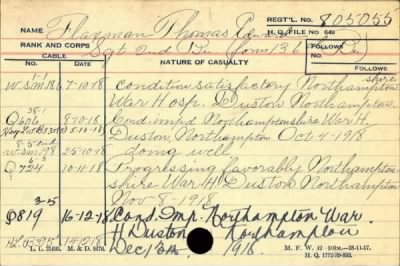 REGT'L. No. 805055
NAME Flaxman Thomas
H. Q. FILE No. 649
RANK AND CORPS Sgt 2nd Form 136
FOLLOWS
CABLE NATURE OF CASUALTY FOLLOWS
No. DATE
7-10-18 condition satisfactory Northampton-shire
War Hosp. Duston Northampton.
Q606 8-10-18 Cond. impd Northamptonshire War H.
Duston, Northampton Oct 4-1918
doing well
Q724 10-11-18 Progressing favorably Northampton-
shire War H Duston Northampton
Nov 8-1918
Q819 16-12-18 Cond. Imp. Northampton War
H Duston Northampton
Dec 13th 1918.
M. F. W. 42
H. Q. 1772-39-893.